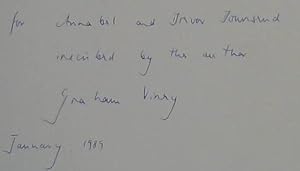 for Annabel and Trevor Townsend
inscribed by the author
Graham Viney
January 1989